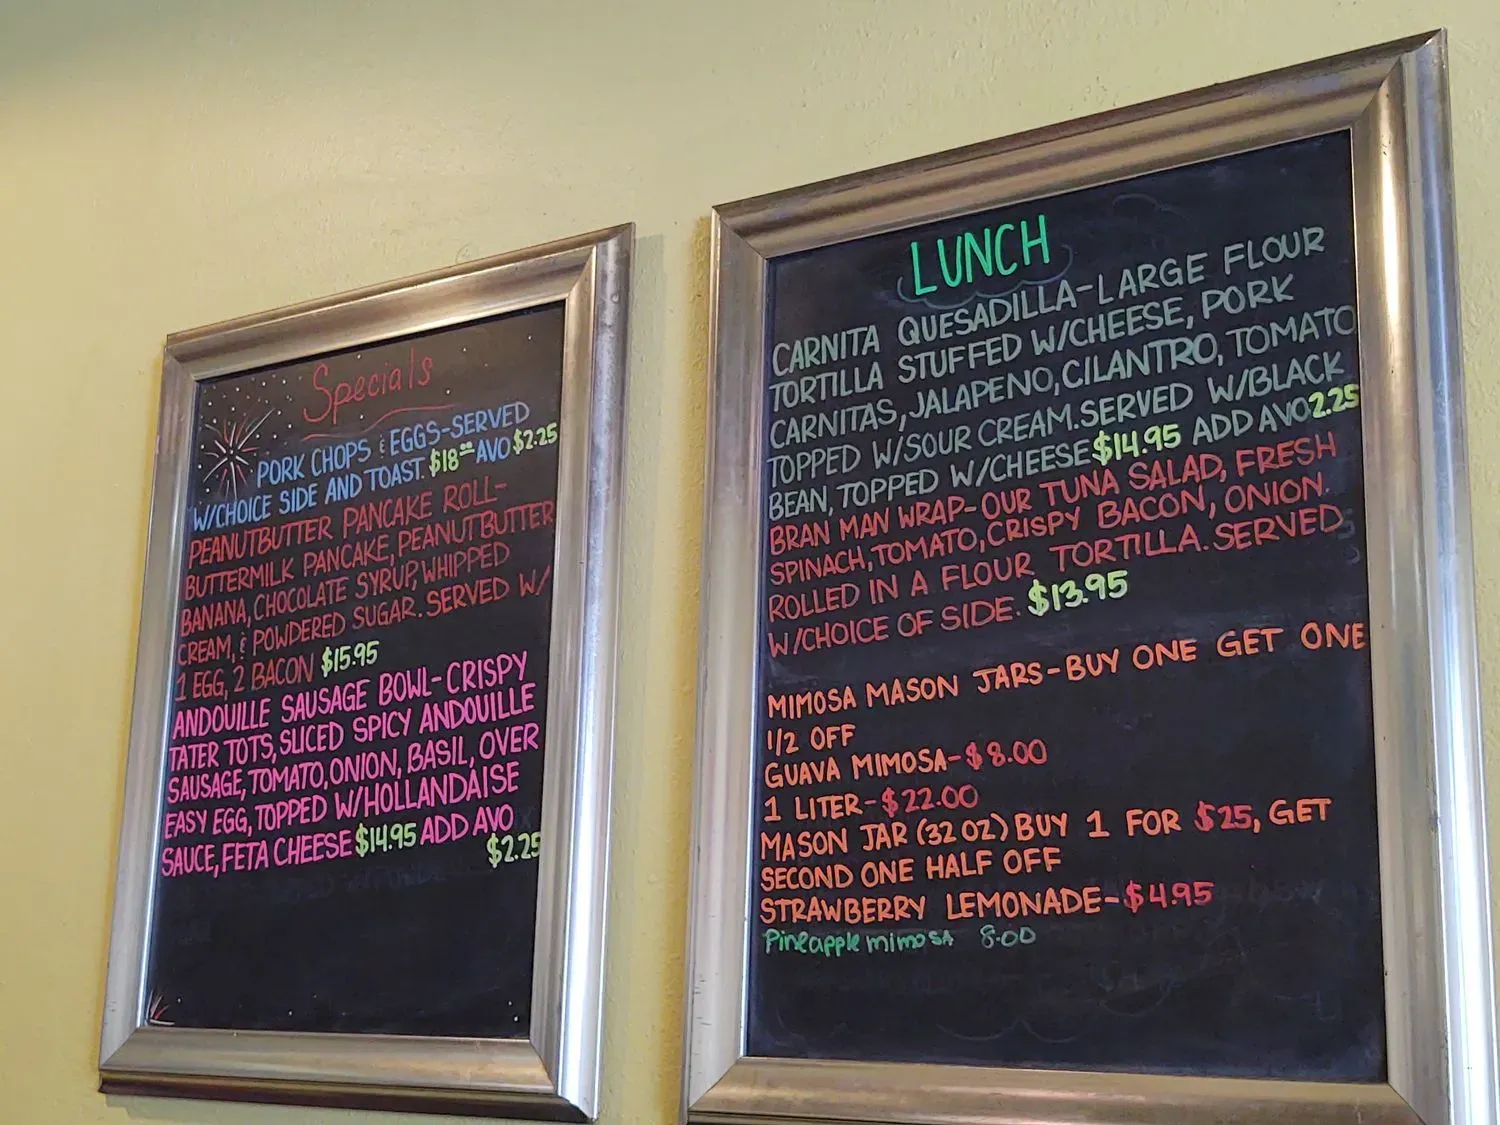 Specials
PORK CHOPS & EGGS-SERVED
W/CHOICE SIDE AND TOAST. $18.00 AVO $2.25
PEANUTBUTTER PANCAKE ROLL-
BUTTERMILK PANCAKE, PEANUTBUTTER
BANANA, CHOCOLATE SYRUP, WHIPPED
CREAM, & POWDERED SUGAR. SERVED W/
1 EGG, 2 BACON $15.95
ANDOUILLE SAUSAGE BOWL-CRISPY
TATER TOTS, SLICED SPICY ANDOUILLE
SAUSAGE, TOMATO, ONION, BASIL, OVER
EASY EGG, TOPPED W/HOLLANDAISE
SAUCE, FETA CHEESE $14.95 ADD AVO
$2.25
LUNCH
CARNITA QUESADILLA-LARGE FLOUR
TORTILLA STUFFED W/CHEESE, PORK
CARNITAS, JALAPENO, CILANTRO, TOMATO
TOPPED W/SOUR CREAM. SERVED W/BLACK
BEAN, TOPPED W/CHEESE $14.95 ADD AVO 2.25
BRAN MAN WRAP-OUR TUNA SALAD, FRESH
SPINACH, TOMATO, CRISPY BACON, ONION.
ROLLED IN A FLOUR TORTILLA. SERVED
W/CHOICE OF SIDE. $13.95
MIMOSA MASON JARS-BUY ONE GET ONE
1/2 OFF
GUAVA MIMOSA-$8.00
1 LITER-$22.00
MASON JAR (32 OZ) BUY 1 FOR $25, GET
SECOND ONE HALF OFF
STRAWBERRY LEMONADE-$4.95
Pineapple mimosa 8.00